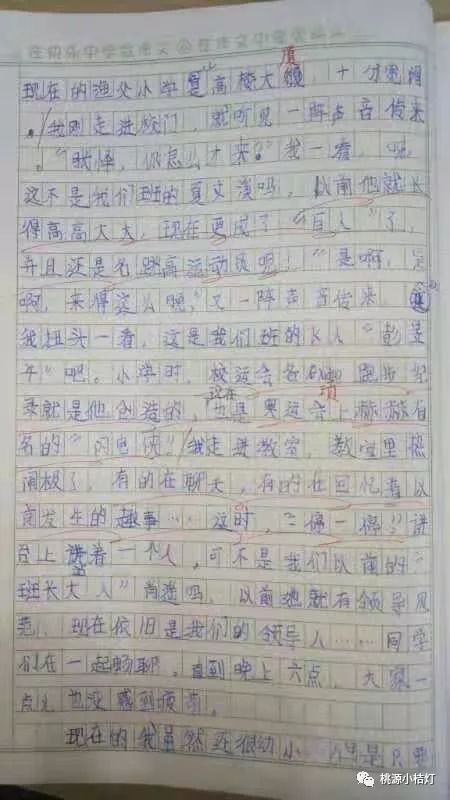 现在的渔父小学高楼大厦，十分宽阔
。我刚走进校门，就听见一阵声音传来
。“晓怿，你怎么才来？”我一看，
这不是我们班的夏文漢吗，以前他就长
得高高大大，现在更成了“巨人”了，
并且还是名跳高运动员呢！“是啊，是
啊，来得这么晚，”又一阵声音传来，
我扭头一看，这是我们班的“彭昱
”吧。小学时，校运会各项跑步纪
录就是他创造的，现在也是奥运会上赫赫有
名的“闪电侠”我走进教室，教室里热
闹极了，有的在聊天，有的在回忆着以
前发生的趣事……这时，“停一停”讲
台上站着一个人，可不是我们以前的“
班长大人”肖逸吗，以前她就有领导风
范，现在依旧是我们的领导人……同学
们在一起畅聊，直到晚上六点，大家一
点儿也没感到疲劳。
现在的我虽然还很幼小，但是只要
桃源小桔灯